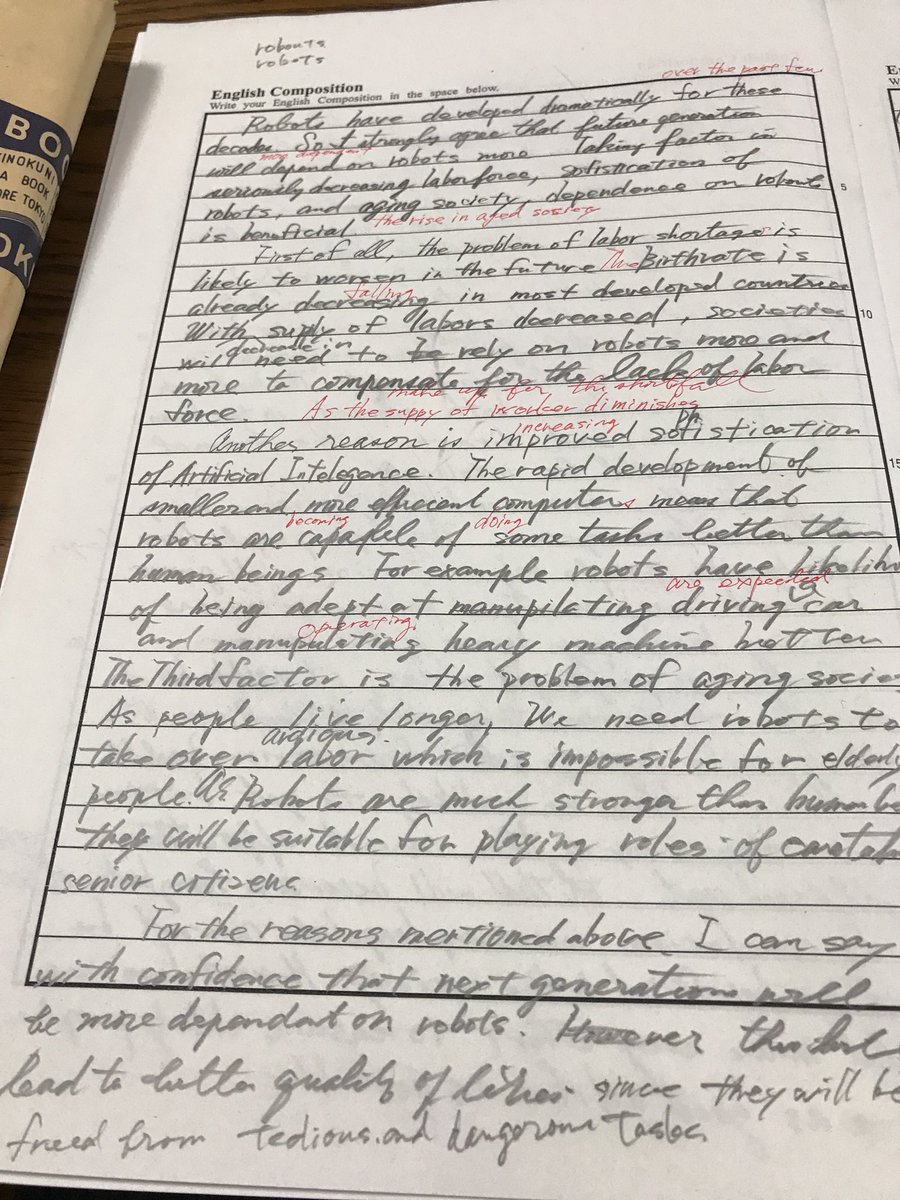 robouts
robots
BOO
KINOKUNI
A BOOK
ORE TOKYO
OK
English Composition
Write your English Composition in the space below.
over the past few
Robots have developed dramatically for these
decades. So I strongly agree that future generation
more dependent
will depend on robots more Taking factor in
seriously decreasing labor force, sofistication of
robots, and aging society, dependence on robout
5
is beneficial.
the rise in aged society
First of all, the problem of labor shortage is
likely to worsen in the future The Birthrate is
falling
already decreasing in most developed countries
10
With supply of labors decreased, societies
decrease in
will need to be rely on robots more and
more to compensate for the lack of labor
make up for the shortfall
force.
As the supply of worker diminishes
increasing
ph
Another reason is improved sofistication
of Artificial Intelegence. The rapid development of
15
smaller and more effecient computers means that
becoming
doing
robots are capable of some tasks better than
human beings For example robots have likelih
are expected
of being adept at manupilating driving a car
operating
and manupulating heavy machine
The Third factor is the problem of aging socie
As people live longer, We need robots to
arduous
take over labor which is impossible for elderly
people. As Robots are much stronger than human be
they will be suitable for playing roles of
senior citizens
For the reasons mentioned above I can say
with confidence that next generation will
be more dependant on robots. However this
lead to better quality of since they will be
freed from tedious and dangerous tasks